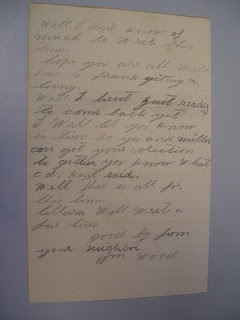 Well I dont know of
much to write this
time.
hope you are all well
how is Frank geting a
long.
Well I hent just ready
to come back yet
I Will let you know
in time so you and miller
can get your colection
to gether you know what
c.d. Kent said.
Well this is all for
this time
Clara Will Write a
few lines
good by from
your neighbor
Wm Word